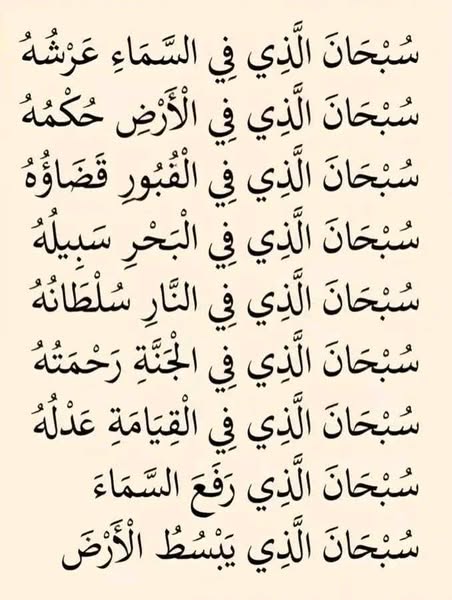 سُبْحَانَ الَّذِي فِي السَّمَاءِ عَرْشُهُ
سُبْحَانَ الَّذِي فِي الْأَرْضِ حُكْمُهُ
سُبْحَانَ الَّذِي فِي الْقُبُورِ قَضَاؤُهُ
سُبْحَانَ الَّذِي فِي الْبَحْرِ سَبِيلُهُ
سُبْحَانَ الَّذِي فِي النَّارِ سُلْطَانُهُ
سُبْحَانَ الَّذِي فِي الْجَنَّةِ رَحْمَتُهُ
سُبْحَانَ الَّذِي فِي الْقِيَامَةِ عَدْلُهُ
سُبْحَانَ الَّذِي رَفَعَ السَّمَاءَ
سُبْحَانَ الَّذِي يَبْسُطُ الْأَرْضَ